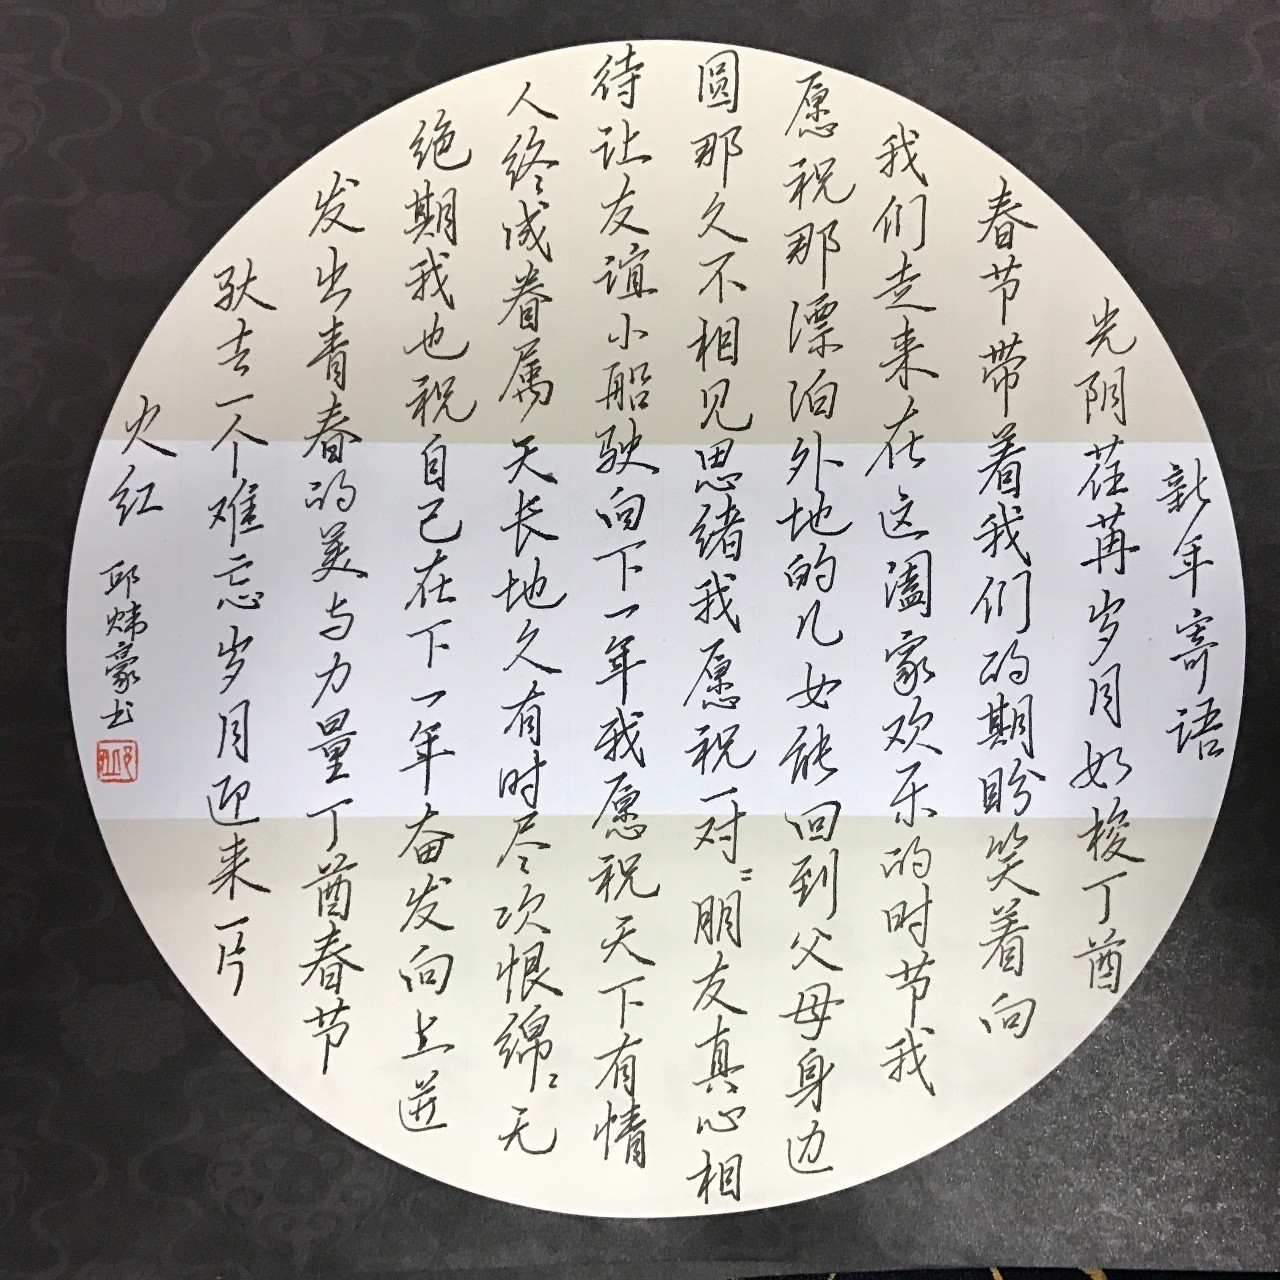 新年寄语
光阴荏苒岁月如梭丁酉
春节带着我们的期盼笑着向
我们走来在这阖家欢乐的时节我
愿祝那漂泊外地的儿女能回到父母身边
圆那久不相见思绪我愿祝一对〻朋友真心相
待让友谊小船驶向下一年我愿祝天下有情
人终〻成眷属天长地久有时尽次恨绵〻无
绝期我也祝自己在下一年奋发向上迸
发出青春的美与力量丁酉春节
驮去一个难忘岁月迎来一片
火红
邱炜豪书
邱